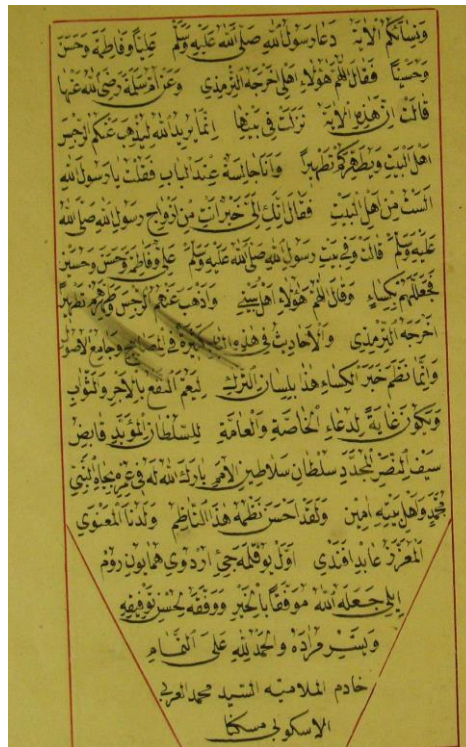 ونسائكم الآية دعا رسول الله صلى الله عليه وسلم عليا وفاطمة وحسن
وحسينا فقال اللهم هؤلاء اهلى اخرجه الترمذي وعن ام سلمة رضى الله عنها
قالت ان هذه الآية نزلت فى بيتها انما يريد الله ليذهب عنكم الرجس
اهل البيت ويطهركم تطهيرا وانا جالسة عند الباب فقلت يا رسول الله
الست من اهل البيت فقال انك الى خير انت من ازواج رسول الله صلى الله
عليه وسلم قالت وفى بيت رسول الله صلى الله عليه وسلم على وفاطمة وحسن وحسين
فجللهم بكساء وقال اللهم هؤلاء اهل بيتى واذهب عنهم الرجس وطهرهم تطهيرا
اخرجه الترمذي والاحاديث فى هذه كثيرة فى وجامع الاصول
وانما نظم خبر الكساء هذا بلسان الترك ليعم النفع بالاجر والثواب
ويكون غاية لدعاء الخاصة والعامة للسلطان المؤيد قابض
سيف النصر المجدد سلطان سلاطين الامم بارك الله له فى عمره بجاه النبى
محمد واهل بيته امين ولقد احسن نظمه هذا الناظم ولدنا المعنوى
المعزز عابد افندي اول يوقلمه جئ اردوي همايون روم
ايلى جعله الله موفقا بالخير ووفقه لحسن توفيقه
ويسر مراده والحمد لله على التمام
خادم الملاميه السيد محمد العربى
الاسكوبى مسكنا